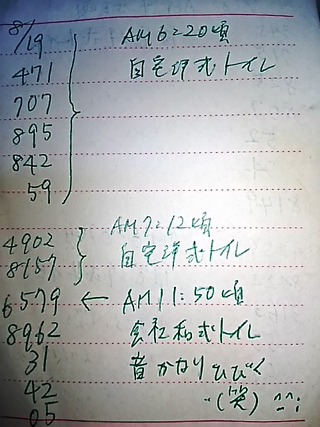 8/19 AM6:20頃
471 自宅洋式トイレ
707
895
842
59
4902 AM7:12頃
8157 自宅洋式トイレ
6579 ← AM11:50頃
8962 会社和式トイレ
31 音かなりひびく
42 (笑) ^^;
05